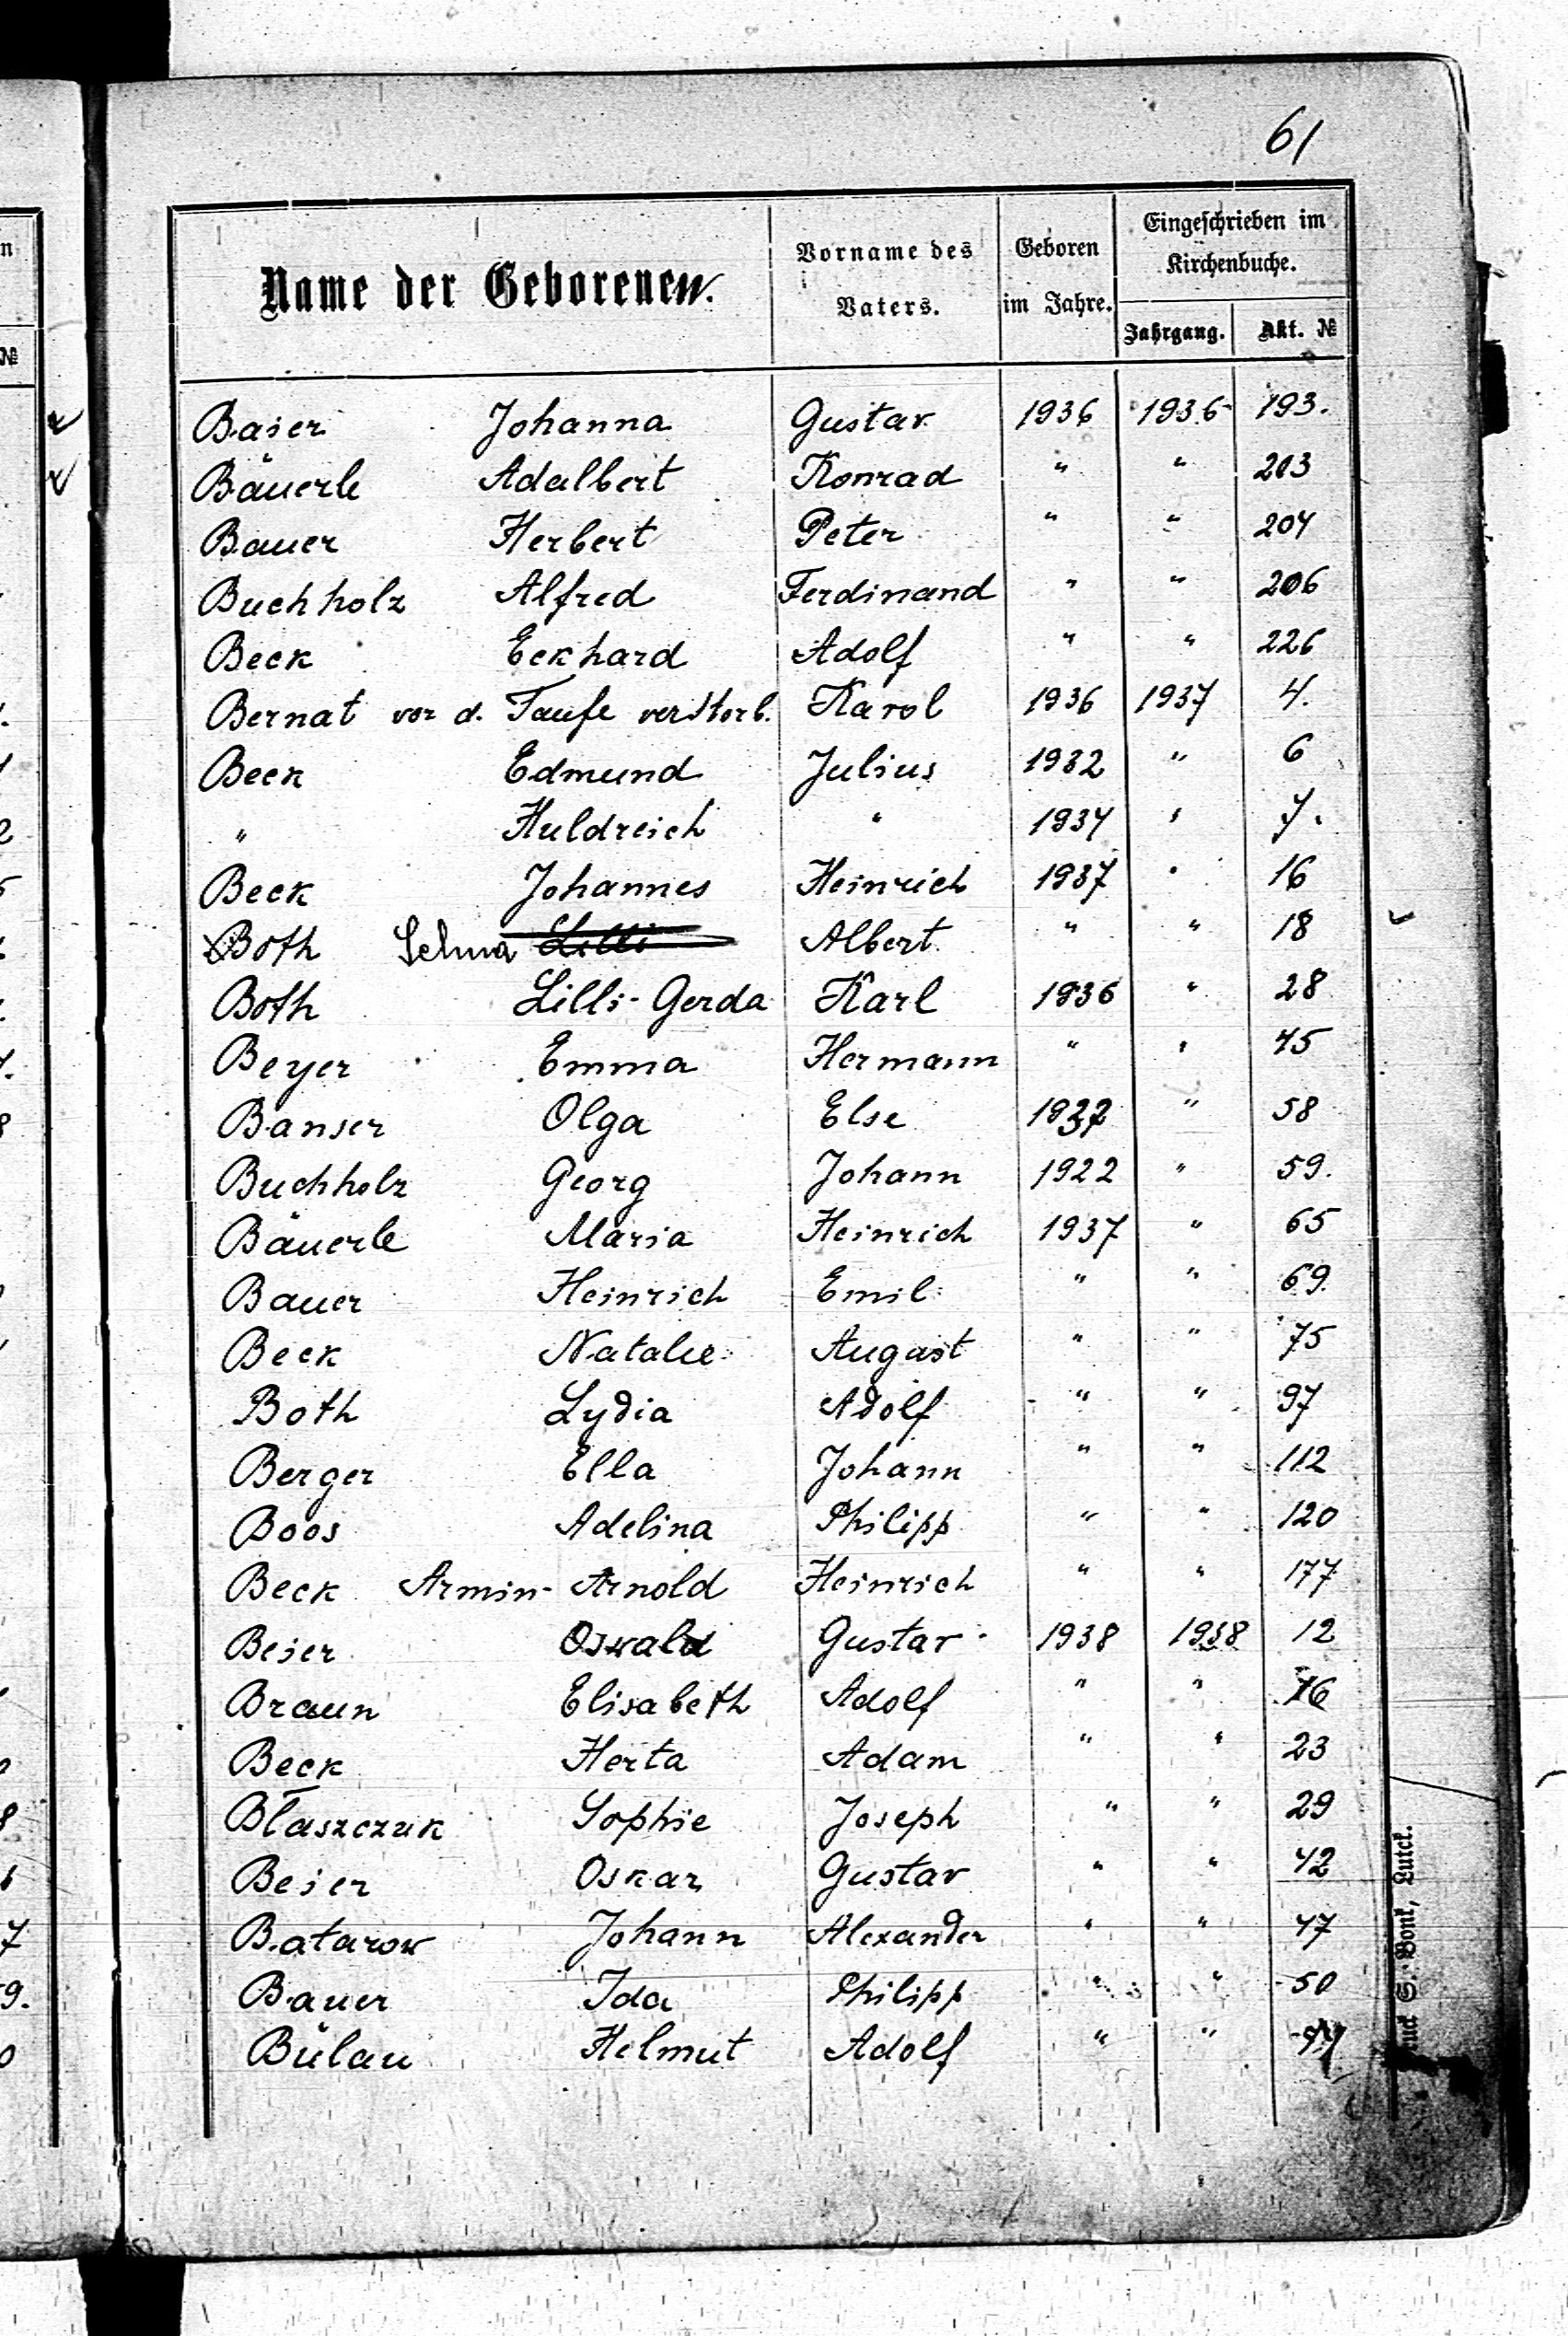 61
Name der Geborenen. Vorname des Vaters. Geboren im Jahre. Eingeschrieben im Kirchenbuche.
Jahrgang. Akt. №
Baier Johanna Gustav 1936 1936 193.
Bäuerle Adalbert Konrad " " 203
Bauer Herbert Peter " " 204
Buchholz Alfred Ferdinand " " 206
Beck Eckhard Adolf " " 226
Bernat vor d. Taufe verstorb. Karol 1936 1937 4.
Beck Edmund Julius 1932 " 6
" Huldreich " 1937 " 7.
Beck Johannes Heinrich 1937 " 16
Both Selma Lilli Albert " " 18
Both Lilli-Gerda Karl 1936 " 28
Beyer Emma Hermann " " 45
Banser Olga Else " 58
Buchholz Georg Johann 1922 " 59.
Bäuerle Maria Heinrich 1937 " 65
Bauer Heinrich Emil " " 69.
Beck Natalie August " " 75
Both Lydia Adolf " " 97
Berger Ella Johann " " 112
Boos Adelina Philipp " " 120
Beck Armin-Arnold Heinrich " " 177
Beier Oswald Gustav 1938 1938 12
Braun Elisabeth Adolf " " 16
Beck Herta Adam " " 23
Błaszczuk Sophie Joseph " " 29
Beier Oskar Gustav " " 42
Batarow Johann Alexander " " 47
Bauer Ida Philipp " " 50
Bülau Helmut Adolf " "
S. Bonk, Luck.